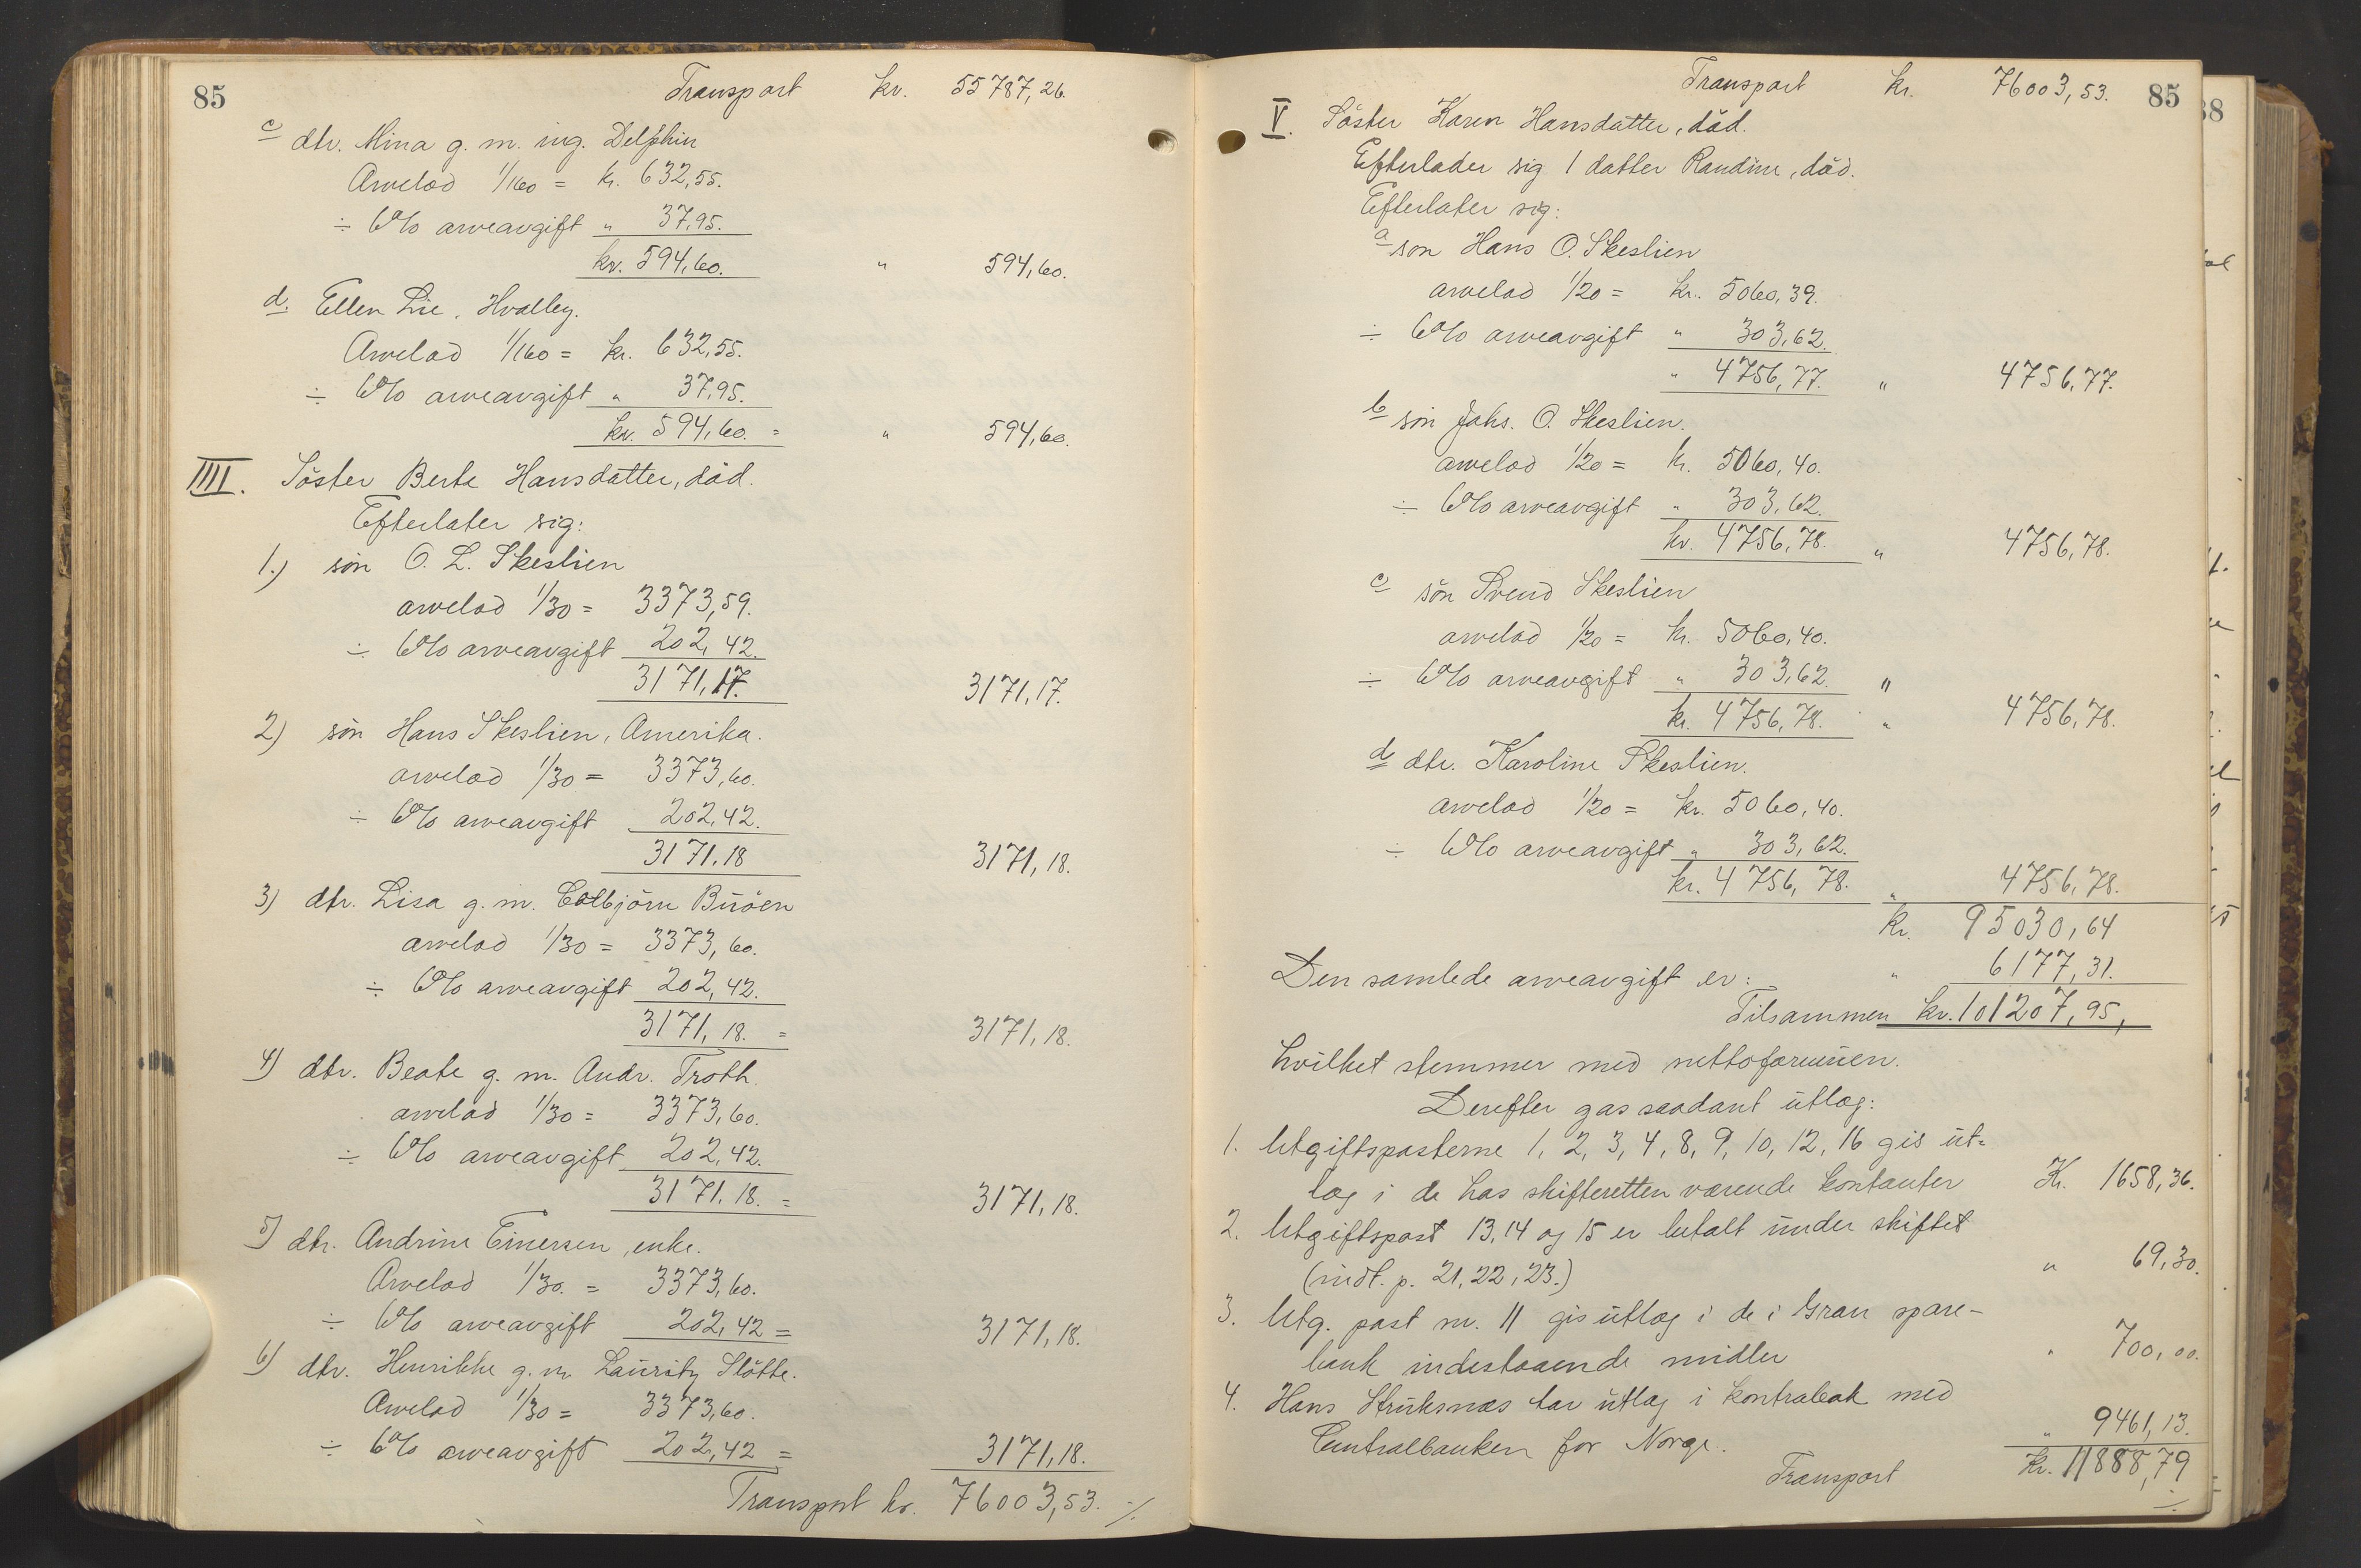 85
Transport kr. 55787,26.
c dtr. Mina g. m. ing. Delphin
Arvelod 1/160 = kr. 632,55.
÷ 6% arveavgift " 37,95.
kr. 594,60. " 594,60.
d. Ellen Lie, Hvalby.
Arvelod 1/160 = kr. 632,55.
÷ 6% arveavgift " 37,95.
kr. 594,60. = " 594,60.
IIII. Söster Berte Hansdatter, död.
Efterlater sig:
1.) sön O. L. Skeslien
arvelod 1/30 = 3373,59.
÷ 6% arveavgift 202,42.
3171,17. 3171,17.
2) sön Hans Skeslien, Amerika.
arvelod 1/30 = 3373,60.
÷ 6% arveavgift 202,42.
3171,18 3171,18.
3) dtr. Lisa g. m. Colbjörn Buöen
arvelod 1/30 = 3373,60.
÷ 6% arveavgift 202,42.
3171,18. = 3171,18.
4) dtr. Beate g. m. Andr. Troth.
arvelod 1/30 = 3373,60.
÷ 6% arveavgift 202,42.
3171,18. = 3171,18.
5) dtr. Andrine Einersen, enke.
Arvelod 1/30. = 3373,60.
÷ 6% arveavgift 202,42 = 3171,18.
6) dtr. Henrikke g. m. Lauritz Slötte.
Arvelod 1/30 = 3373,60.
÷ 6% arveavgift 202,42 = 3171,18.
Transport kr. 76003,53. ./.
Transport kr. 76003,53. 85
V. Söster Karen Hansdatter, död.
Efterlader sig 1 datter Randine, död.
Efterlater sig:
a sön Hans O. Skeslien
arvelod 1/20 = kr. 5060,39.
÷ 6% arveavgift " 303,62.
" 4756,77. " 4756,77.
b sön Johs. O. Skeslien.
arvelod 1/20 = kr. 5060,40.
÷ 6% arveavgift " 303,62.
kr. 4756,78. " 4756,78.
c sön Svend Skeslien
arvelod 1/20 = kr. 5060,40.
÷ 6% arveavgift " 303,62. "
kr. 4756,78. " 4756,78.
d dtr. Karoline Skeslien.
arvelod 1/20 = kr. 5060,40.
÷ 6% arveavgift " 303,62.
kr. 4756,78. " 4756,78.
kr. 95030,64
Den samlede arveavgift er: " 6177,31.
Tilsammen kr. 101207,95,
hvilket stemmer med nettoformuen.
Derefter gas saadant utlæg:
1. Utgiftsposterne 1, 2, 3, 4, 8, 9, 10, 12, 16 gis ut=
læg i de hos skifteretten værende kontanter Kr. 1658,36.
2. Utgiftspost 13, 14 og 15 er betalt under skiftet
(indt. p. 21, 22, 23.) " 69,30.
3. Utg. post nr. 11 gis utlæg i de i Gran spare-
bank indestaaende midler " 700,00.
4. Hans Struksnæs tar utlæg i kontrabok med
Centralbanken for Norge. " 9461,13.
Transport kr. 11888,79
./.
38